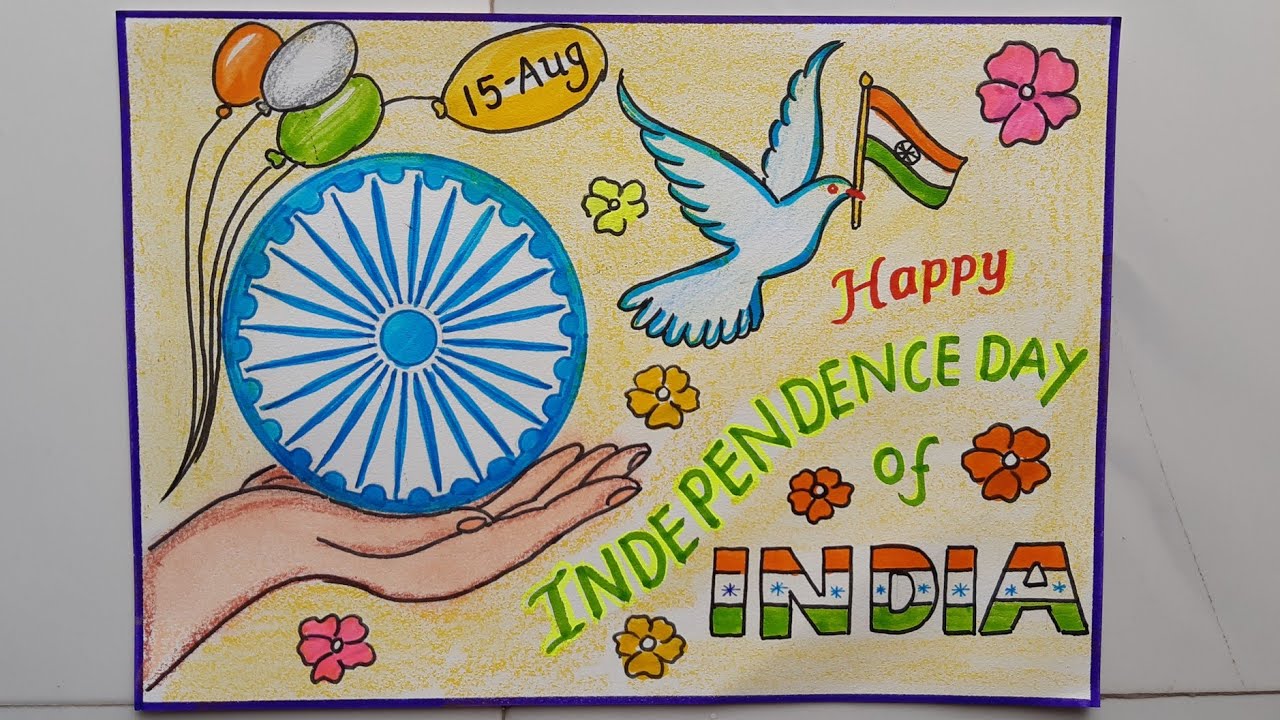 15-Aug
Happy
INDEPENDENCE DAY
of
INDIA